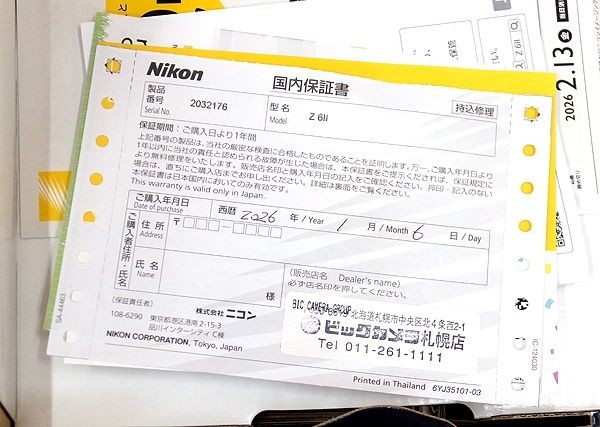 Nikon
国内保証書
製品番号 Serial No. 2032176
型名 Model Z 6II
持込修理
保証期間：ご購入日より1年間
上記番号の製品は、当社の厳密な検査に合格したものであることを証明します。万一、ご購入年月日より
1年以内に当社の責任と認められる故障が生じた場合は、本保証書をご提示くだされば、保証規定に
より無料修理をいたします。販売店名印と購入年月日の記入をご確認ください。押印・記入のない
場合は、直ちにご購入店までお申し出ください。詳細は裏面をご覧ください。
本保証書は日本国内においてのみ有効です。
This warranty is valid only in Japan.
ご購入年月日 Date of purchase
西暦 2026 年/Year 1 月/Month 6 日/Day
ご購入者住所・氏名
住所 Address
〒
氏名 Name
様
(販売店名 Dealer's name)
必ず店名印を押してください。
(保証責任者)
株式会社 ニコン
108-6290 東京都港区港南2-15-3
品川インターシティC棟
NIKON CORPORATION, Tokyo, Japan
BIC CAMERA GROUP
北海道札幌市中央区北4条西2-1
ビックカメラ札幌店
Tel 011-261-1111
Printed in Thailand 6YJ35101-03
SA-44463
IC-124030
Z 6II
2026
2.13 金